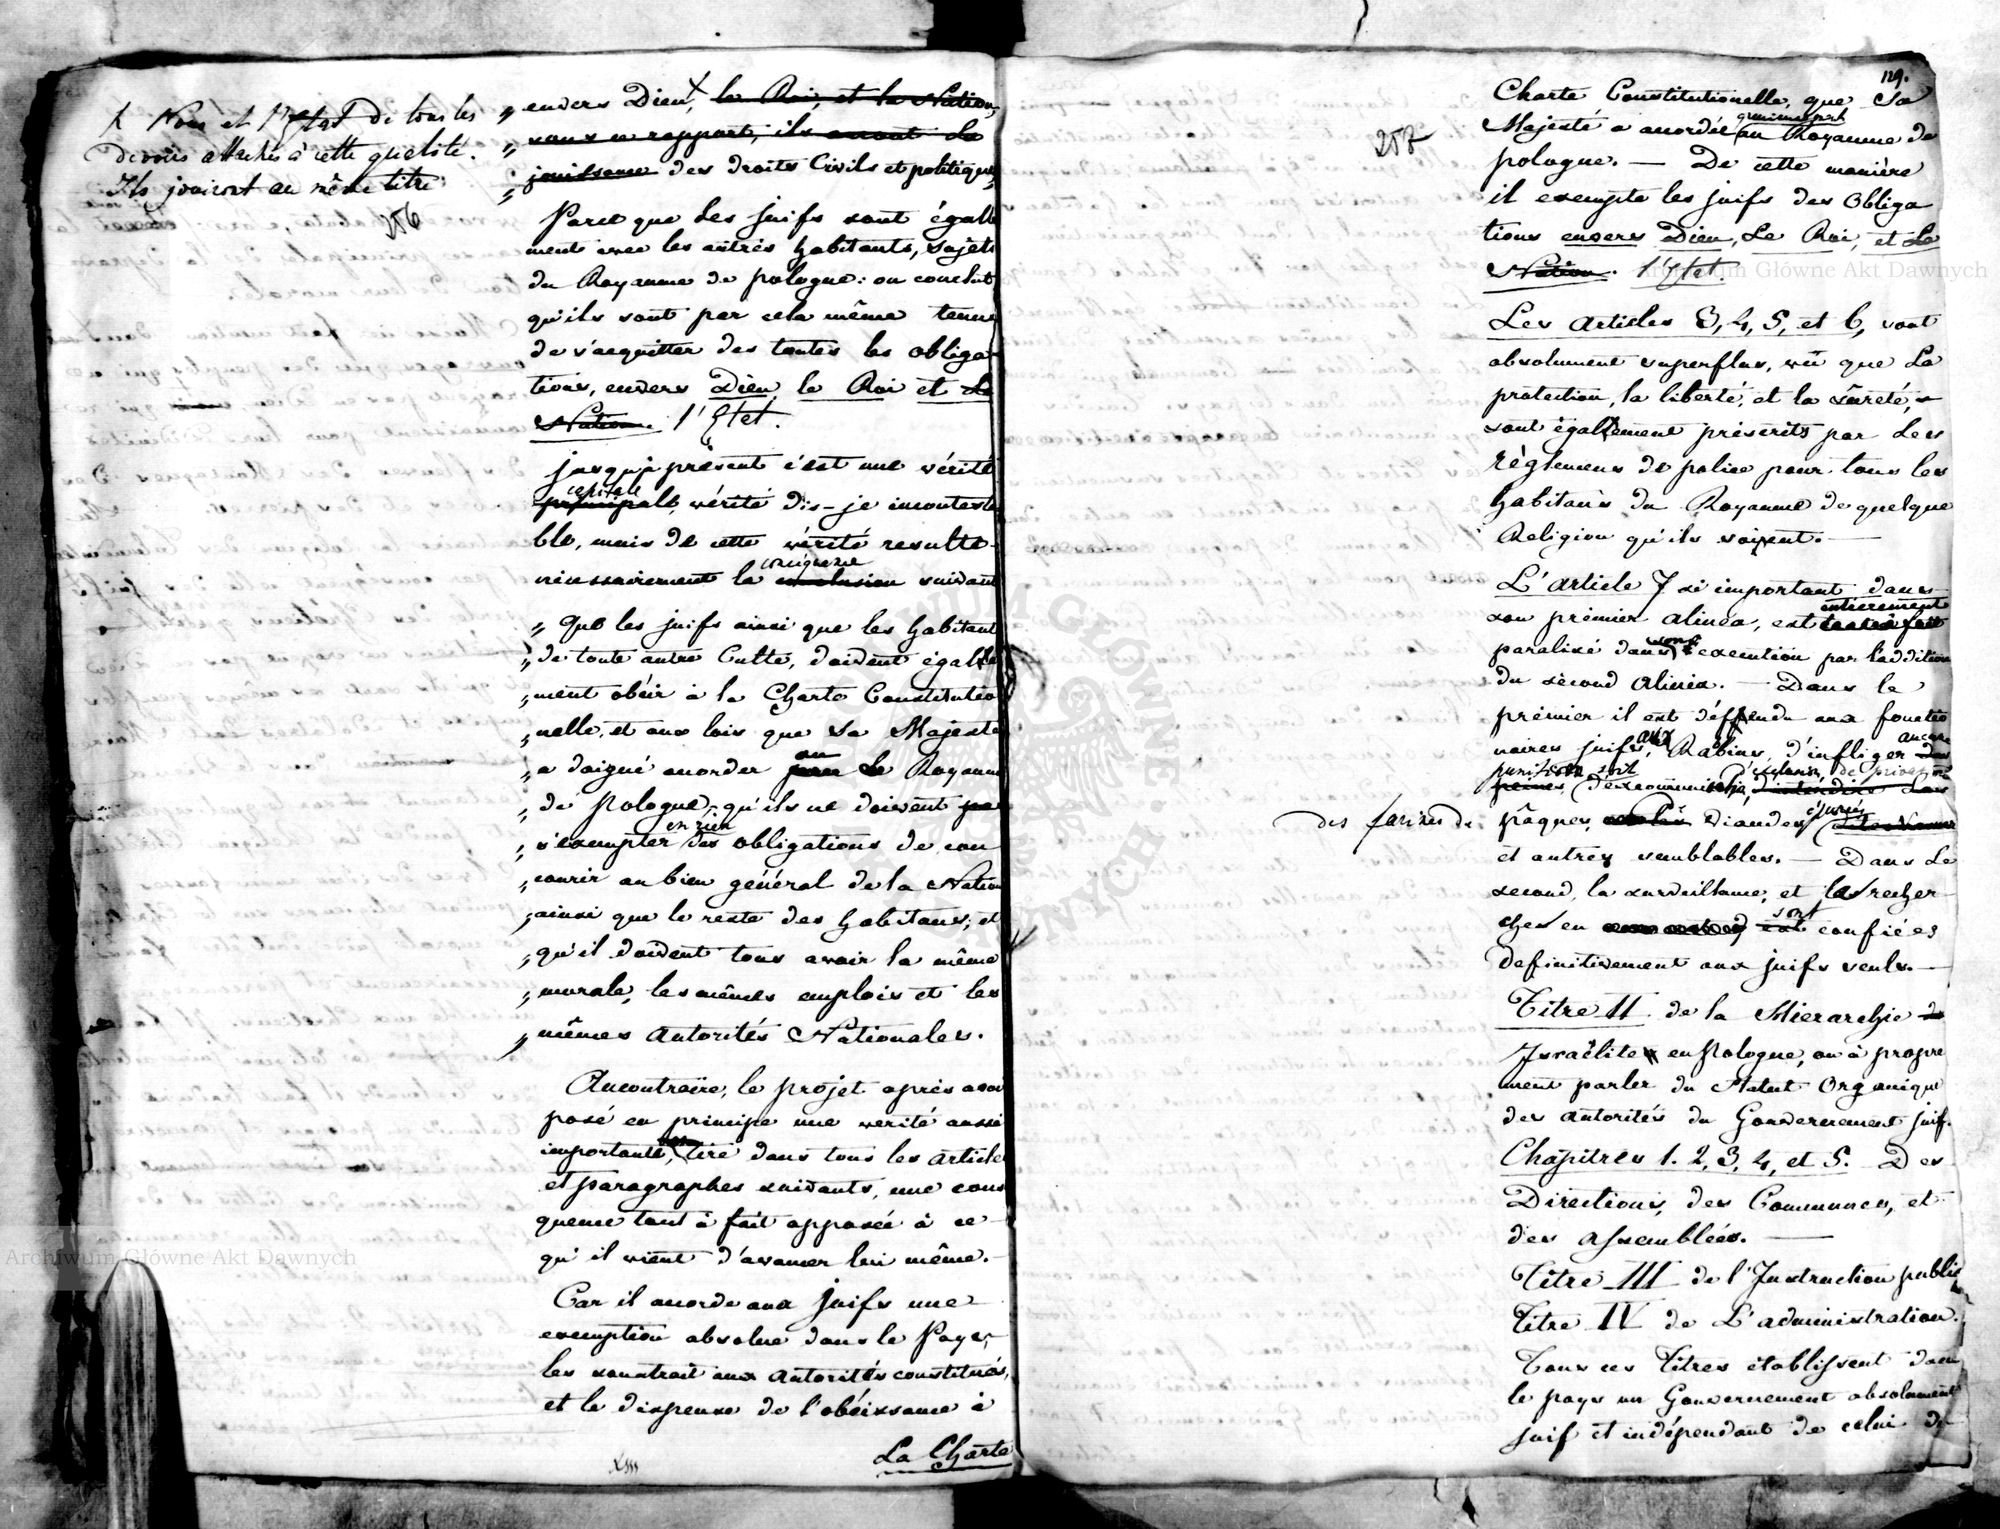 Nous et l'Etat de tous les
devoirs attachés à cette qualité.
Ils jouiront au même titre
256
„ envers Dieu, le Roi, et la Nation,
„ sous ce rapport, ils auront la
„ jouissance des droits Civils et politiques
Parce que les juifs sont égale
ment avec les autres habitants, sujets
du Royaume de pologne: on conclut
qu'ils sont par cela même tenus
de s'acquitter des toutes les obliga
tions, envers Dieu, le Roi et la
Nation. l'Etat.
jusqu'à présent c'est une vérité
capitale
principale, vérité dis-je incontesta
ble, mais de cette vérité resulte
consequence
nécessairement la conclusion suivant
„ Que les juifs ainsi que les habitant
„ de toute autre Culte, doivent égale
„ ment obéir à la Charte Constitutio
„ nelle, et aux lois que Sa Majesté
au
„ a daigné accorder pour le Royaume
„ de Pologne, qu'ils ne doivent pas
en rien
„ s'exempter des obligations de con
„ courir au bien général de la Nation
„ ainsi que le reste des habitans; et
„ qu'il doivent tous avoir la même
„ morale, les mêmes emplois et les
„ mêmes autorités Nationales.
Aucontraire, le projet après avoir
posé en principe une verité aussi
importante, tire dans tous les article
et paragraphes suivants, une cons
quence tout à fait opposée à ce
qu'il vient d'avancer lui même.
Car il accorde aux juifs une
exemption absolue dans le Pays,
les soustrait aux autorités constitués,
et le dispense de l'obéissance à
La Charte
129.
257
Charte Constitutionelle, que Sa
Majesté a accordée au Royaume de
pologne. — De cette manière
il exempte les juifs des obliga
tions envers Dieu, Le Roi, et La
Nation. l'Etat.
Les articles 3, 4, 5, et 6, sont
absolument superflus, vû que La
protection, la liberté, et la sûreté,
sont également préscrits par les
règlemens de police pour tous les
habitans du Royaume de quelque
Religion qu'ils soient. —
L'article 7 si important dans
entierement
son premier alinéa, est tout à fait
son
paralisé dans execution par l'addition
du sécond alinéa. — Dans le
prémier il est déffendu aux fonctio
aux aucune
naires juifs, Rabins, d'infliger des
punition soit d'exclusion, de privation
peines, d'excommunication, d'interdire
des farines de pâques, viandes
et autres semblables. — Dans Le
second, la surveillance, et les recher
sont
ches en est confiées
definitivement aux juifs seuls. —
Titre II de la Hierarchie
Israëlite en Pologne, ou à propre
ment parler du Statut Organique
des autorités du Gouvernement juif.
Chapitres 1. 2, 3, 4, et 5. Des
Directions, des Communes, et
des assemblées. —
Titre III de l'Instruction publi
Titre IV de L'administration.
Tous ces Titres établissent dans
le pays un Gouvernement absolument
juif et indépendant de celui de
Archiwum Główne Akt Dawnych
Archiwum Główne Akt Dawnych
ARCHIWUM GŁÓWNE AKT DAWNYCH